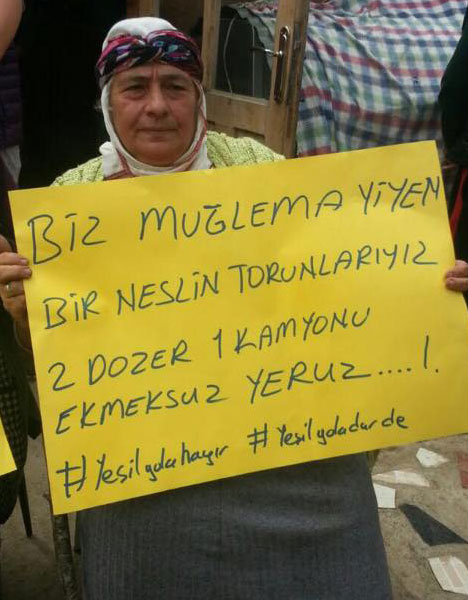 BİZ MUĞLEMA YİYEN
BİR NESLİN TORUNLARIYIZ
2 DOZER 1 KAMYONU
EKMEKSUZ YERUZ....!.
#Yesilyolahayır #Yesilyoladurde